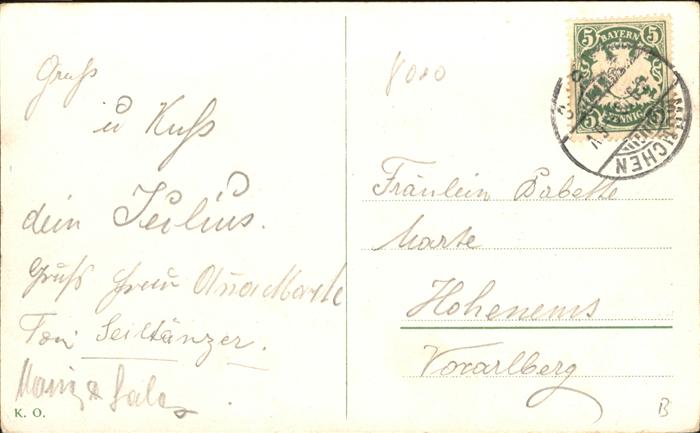 Gruß
u Kuß
dein Julius.
Gruß Frau Anna Marte
Toni Seiltänzer.
K. O.
8000
5 BAYERN 5
5 PFENNIG 5
MÜNCHEN
Fräulein Babette
Marte
Hohenems
Vorarlberg
B